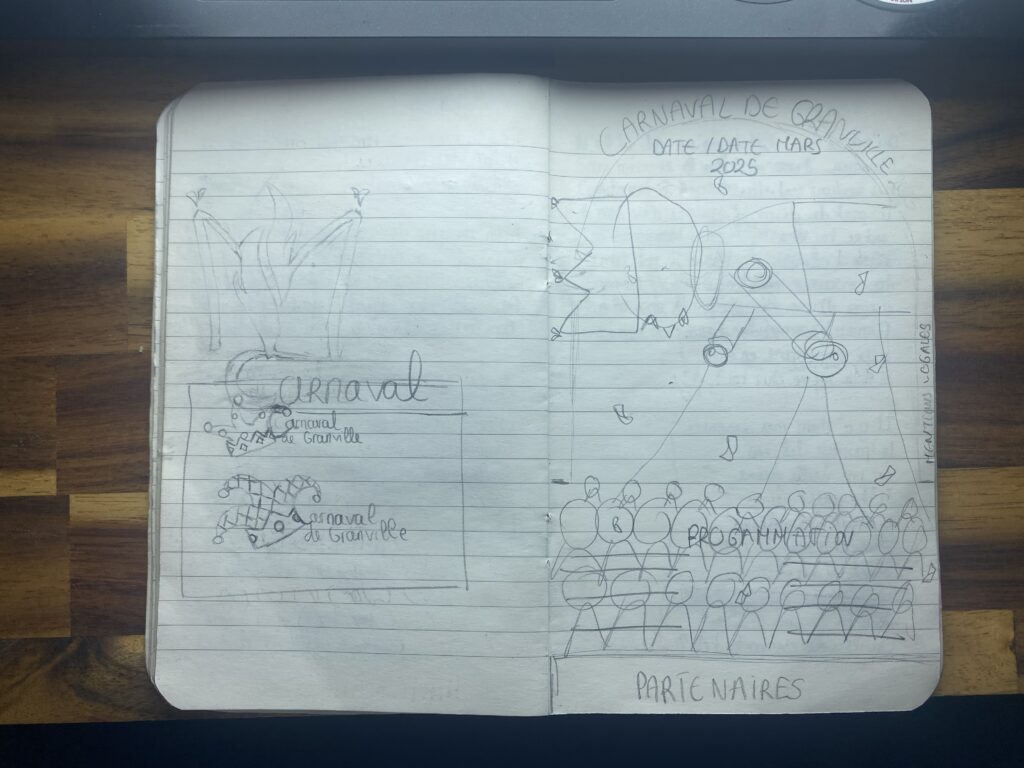 Carnaval
Carnaval
de Granville
Carnaval
de Granville
CARNAVAL DE GRANVILLE
DATE / DATE MARS
2025
MENTIONS LEGALES
PROGAMMATION
PARTENAIRES